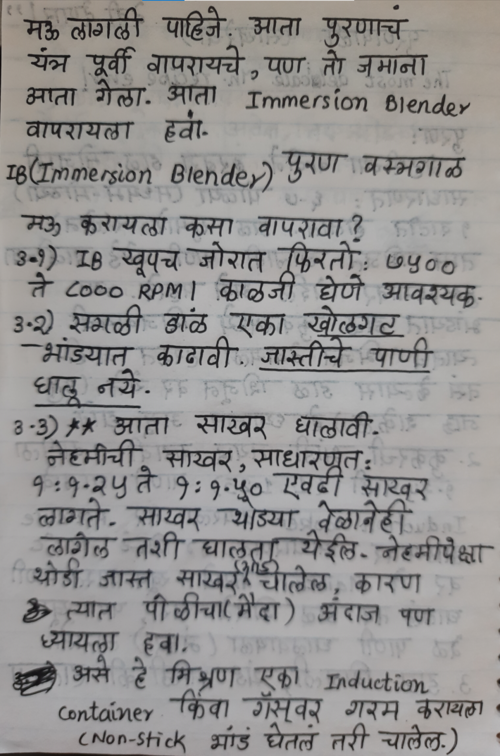 मऊ लागली पाहिजे. आता पुरणाचं
यंत्र पूर्वी वापरायचे, पण तो जमाना
आता गेला. आता Immersion Blender
वापरायला हवा.
IB(Immersion Blender) पुरण वम्मगाळ
मऊ करायला कसा वापरावा?
३-१) IB खूपच जोरात फिरतो. ७५००
ते ८००० RPM! काळजी घेणे आवश्यक.
३-२) सगळी डाळ एका खोलगट
भांड्यात काढावी. जास्तीचे पाणी
घालू नये.
३-३) ** आता साखर घालावी.
नेहमीची साखर, साधारणत:
१:१.२५ ते १:१.५० एवढी साखर
लागते. साखर थोड्या वेळानेही
लागेल तशी घालता येईल. नेहमीपेक्षा
थोडी जास्त साखर चालेल, कारण
त्यात पोळीचा(मैदा) अंदाज पण
घ्यायला हवा.
असे हे मिश्रण एका Induction
container किंवा गॅसवर गरम करायला
(Non-stick भांडं घेतलं तरी चालेल.)